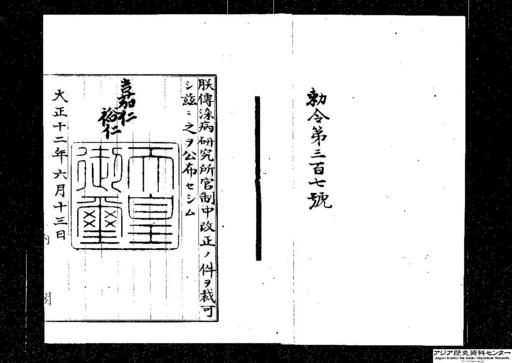 勅令第三百七號
朕傳染病研究所官制中改正ノ件ヲ裁可
シ茲ニ之ヲ公布セシム
嘉仁
裕仁
天皇
御璽
大正十二年六月十三日
内閣
アジア歴史資料センター
Japan Center for Asian Historical Records